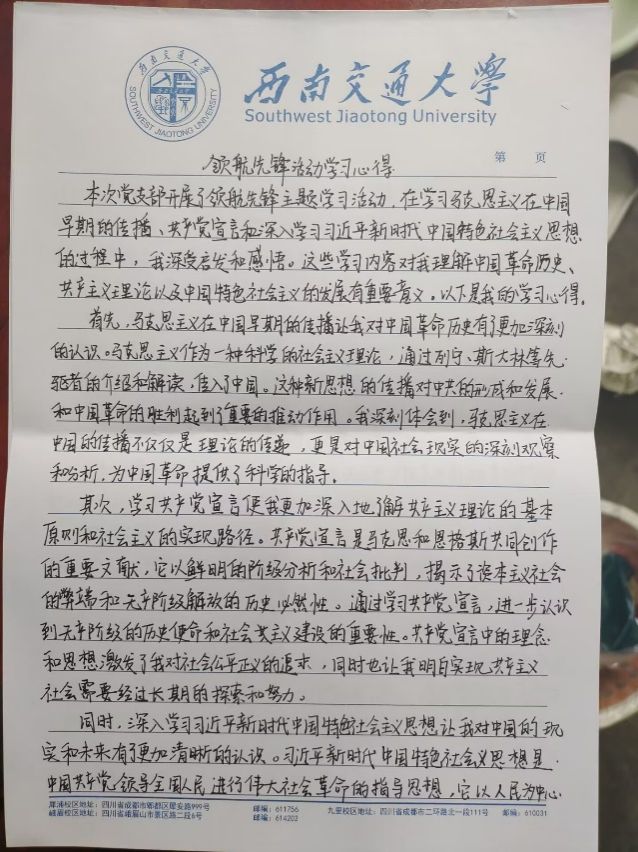 西南交通大学
SOUTHWEST JIAOTONG UNIVERSITY
西南交通大学
Southwest Jiaotong University
第 页
领航先锋活动学习心得
本次党支部开展了领航先锋主题学习活动，在学习马克思主义在中国
早期的传播、共产党宣言和深入学习习近平新时代中国特色社会主义思想
的过程中，我深受启发和感悟。这些学习内容对我理解中国革命历史、
共产主义理论以及中国特色社会主义的发展有重要意义。以下是我的学习心得。
首先，马克思主义在中国早期的传播让我对中国革命历史有了更加深刻
的认识。马克思主义作为一种科学的社会主义理论，通过列宁、斯大林等先
驱者的介绍和解读，传入了中国。这种新思想的传播对中共的形成和发展，
和中国革命的胜利起到了重要的推动作用。我深刻体会到，马克思主义在
中国的传播不仅仅是理论的传递，更是对中国社会现实的深刻观察
和分析，为中国革命提供了科学的指导。
其次，学习共产党宣言使我更加深入地了解共产主义理论的基本
原则和社会主义的实现路径。共产党宣言是马克思和恩格斯共同创作
的重要文献，它以鲜明的阶级分析和社会批判，揭示了资本主义社会
的弊端和无产阶级解放的历史必然性。通过学习共产党宣言，进一步认识
到无产阶级的历史使命和社会主义建设的重要性。共产党宣言中的理念
和思想激发了我对社会公平正义的追求，同时也让我明白实现共产主义
社会需要经过长期的探索和努力。
同时，深入学习习近平新时代中国特色社会主义思想让我对中国的现
实和未来有了更加清晰的认识。习近平新时代中国特色社会主义思想是
中国共产党领导全国人民进行伟大社会革命的指导思想，它以人民为中心
犀浦校区地址：四川省成都市郫都区犀安路999号 邮编：611756 九里校区地址：四川省成都市二环路北一段111号 邮编：610031
峨眉校区地址：四川省峨眉山市景区路二段6号 邮编：614202